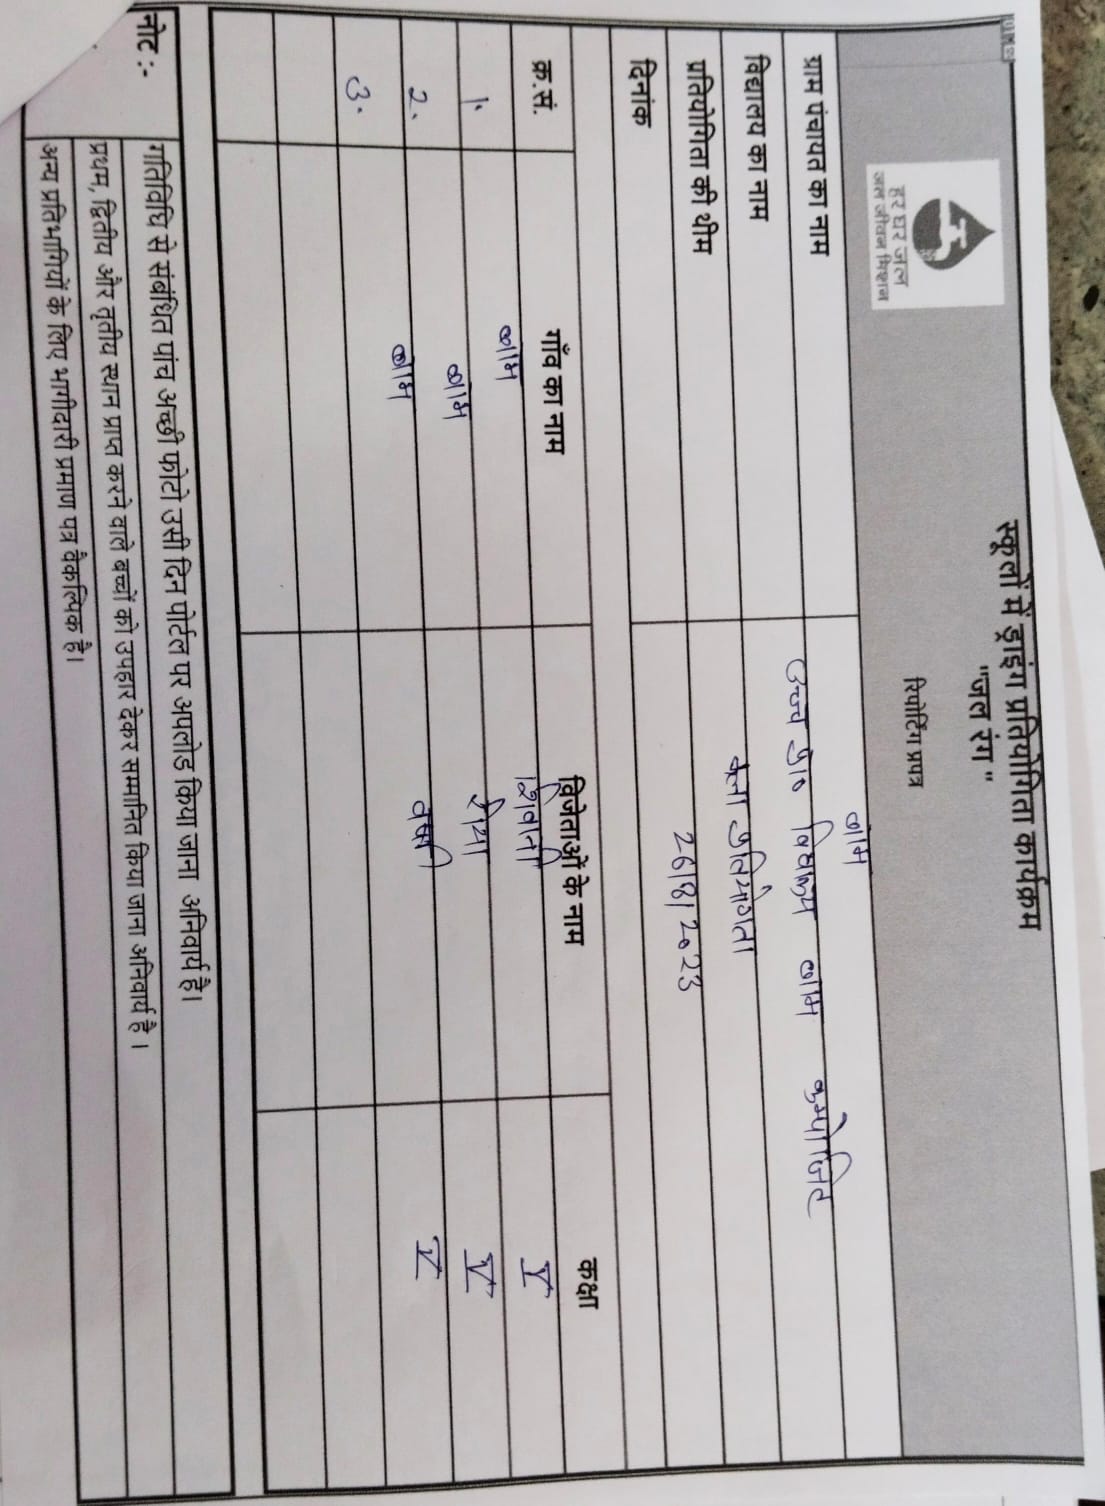 हर घर जल
जल जीवन मिशन
स्कूलों में ड्राइंग प्रतियोगिता कार्यक्रम
"जल रंग"
रिपोर्टिंग प्रपत्र
ग्राम पंचायत का नाम
विद्यालय का नाम उच्च प्रा० विद्यालय
प्रतियोगिता की थीम कला प्रतियोगिता
दिनांक 26/8/2023
क्र.सं. गाँव का नाम विजेताओं के नाम कक्षा
1. शिवानी V
2. V
3. V
नोट :- गतिविधि से संबंधित पांच अच्छी फोटो उसी दिन पोर्टल पर अपलोड किया जाना अनिवार्य है।
प्रथम, द्वितीय और तृतीय स्थान प्राप्त करने वाले बच्चों को उपहार देकर सम्मानित किया जाना अनिवार्य है ।
अन्य प्रतिभागियों के लिए भागीदारी प्रमाण पत्र वैकल्पिक है।